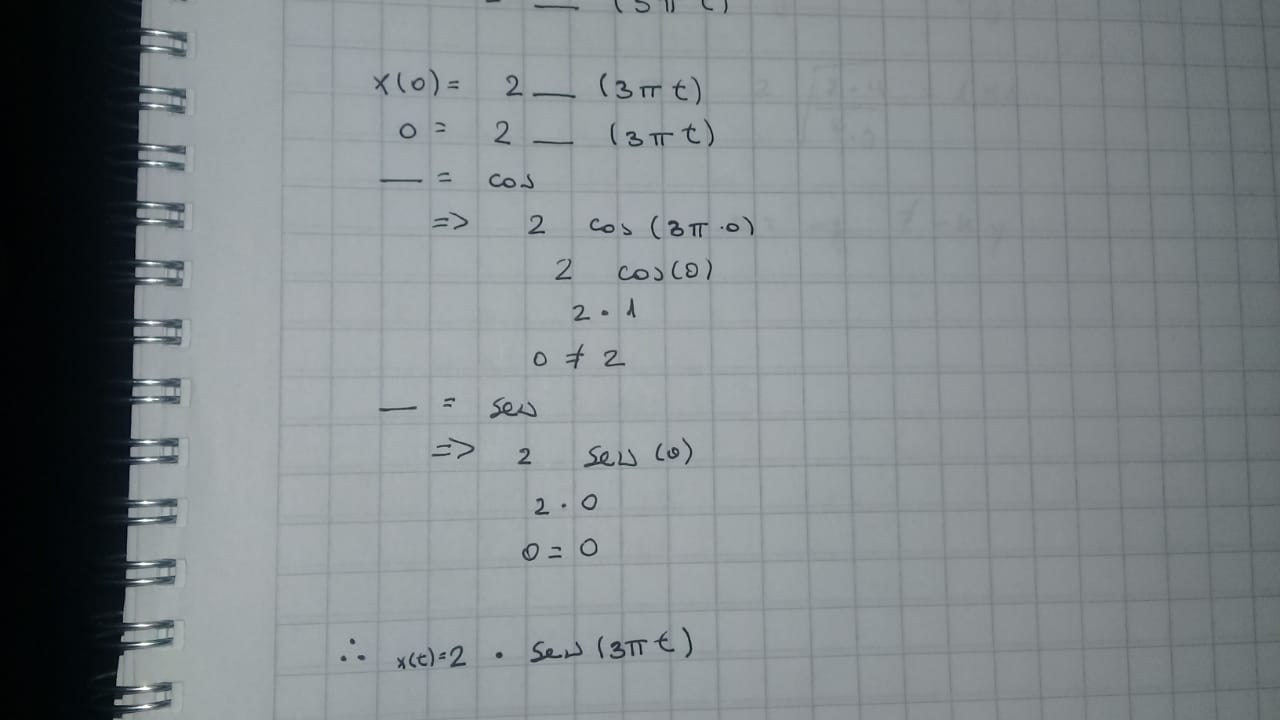 — (3π t)
x(0) = 2 — (3π t)
0 = 2 — (3π t)
— = cos
=> 2 cos (3π · 0)
2 cos(0)
2 · 1
0 ≠ 2
— = sen
=> 2 sen (0)
2 · 0
0 = 0
∴ x(t) = 2 · sen (3π t)